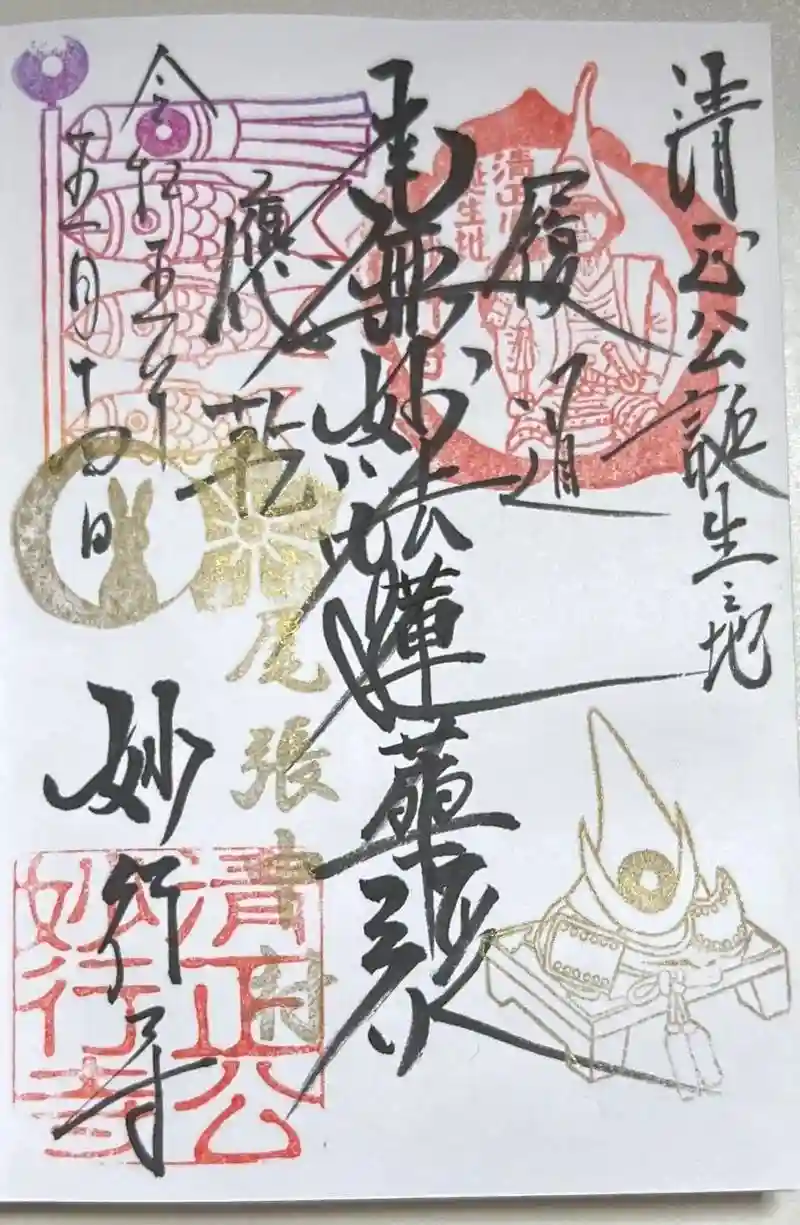 清正公誕生之地
履道
南無妙法蓮華經
應乾
令和五年
五月十四日
妙行寺
清正公
誕生地
尾張中村
清正公
妙行寺